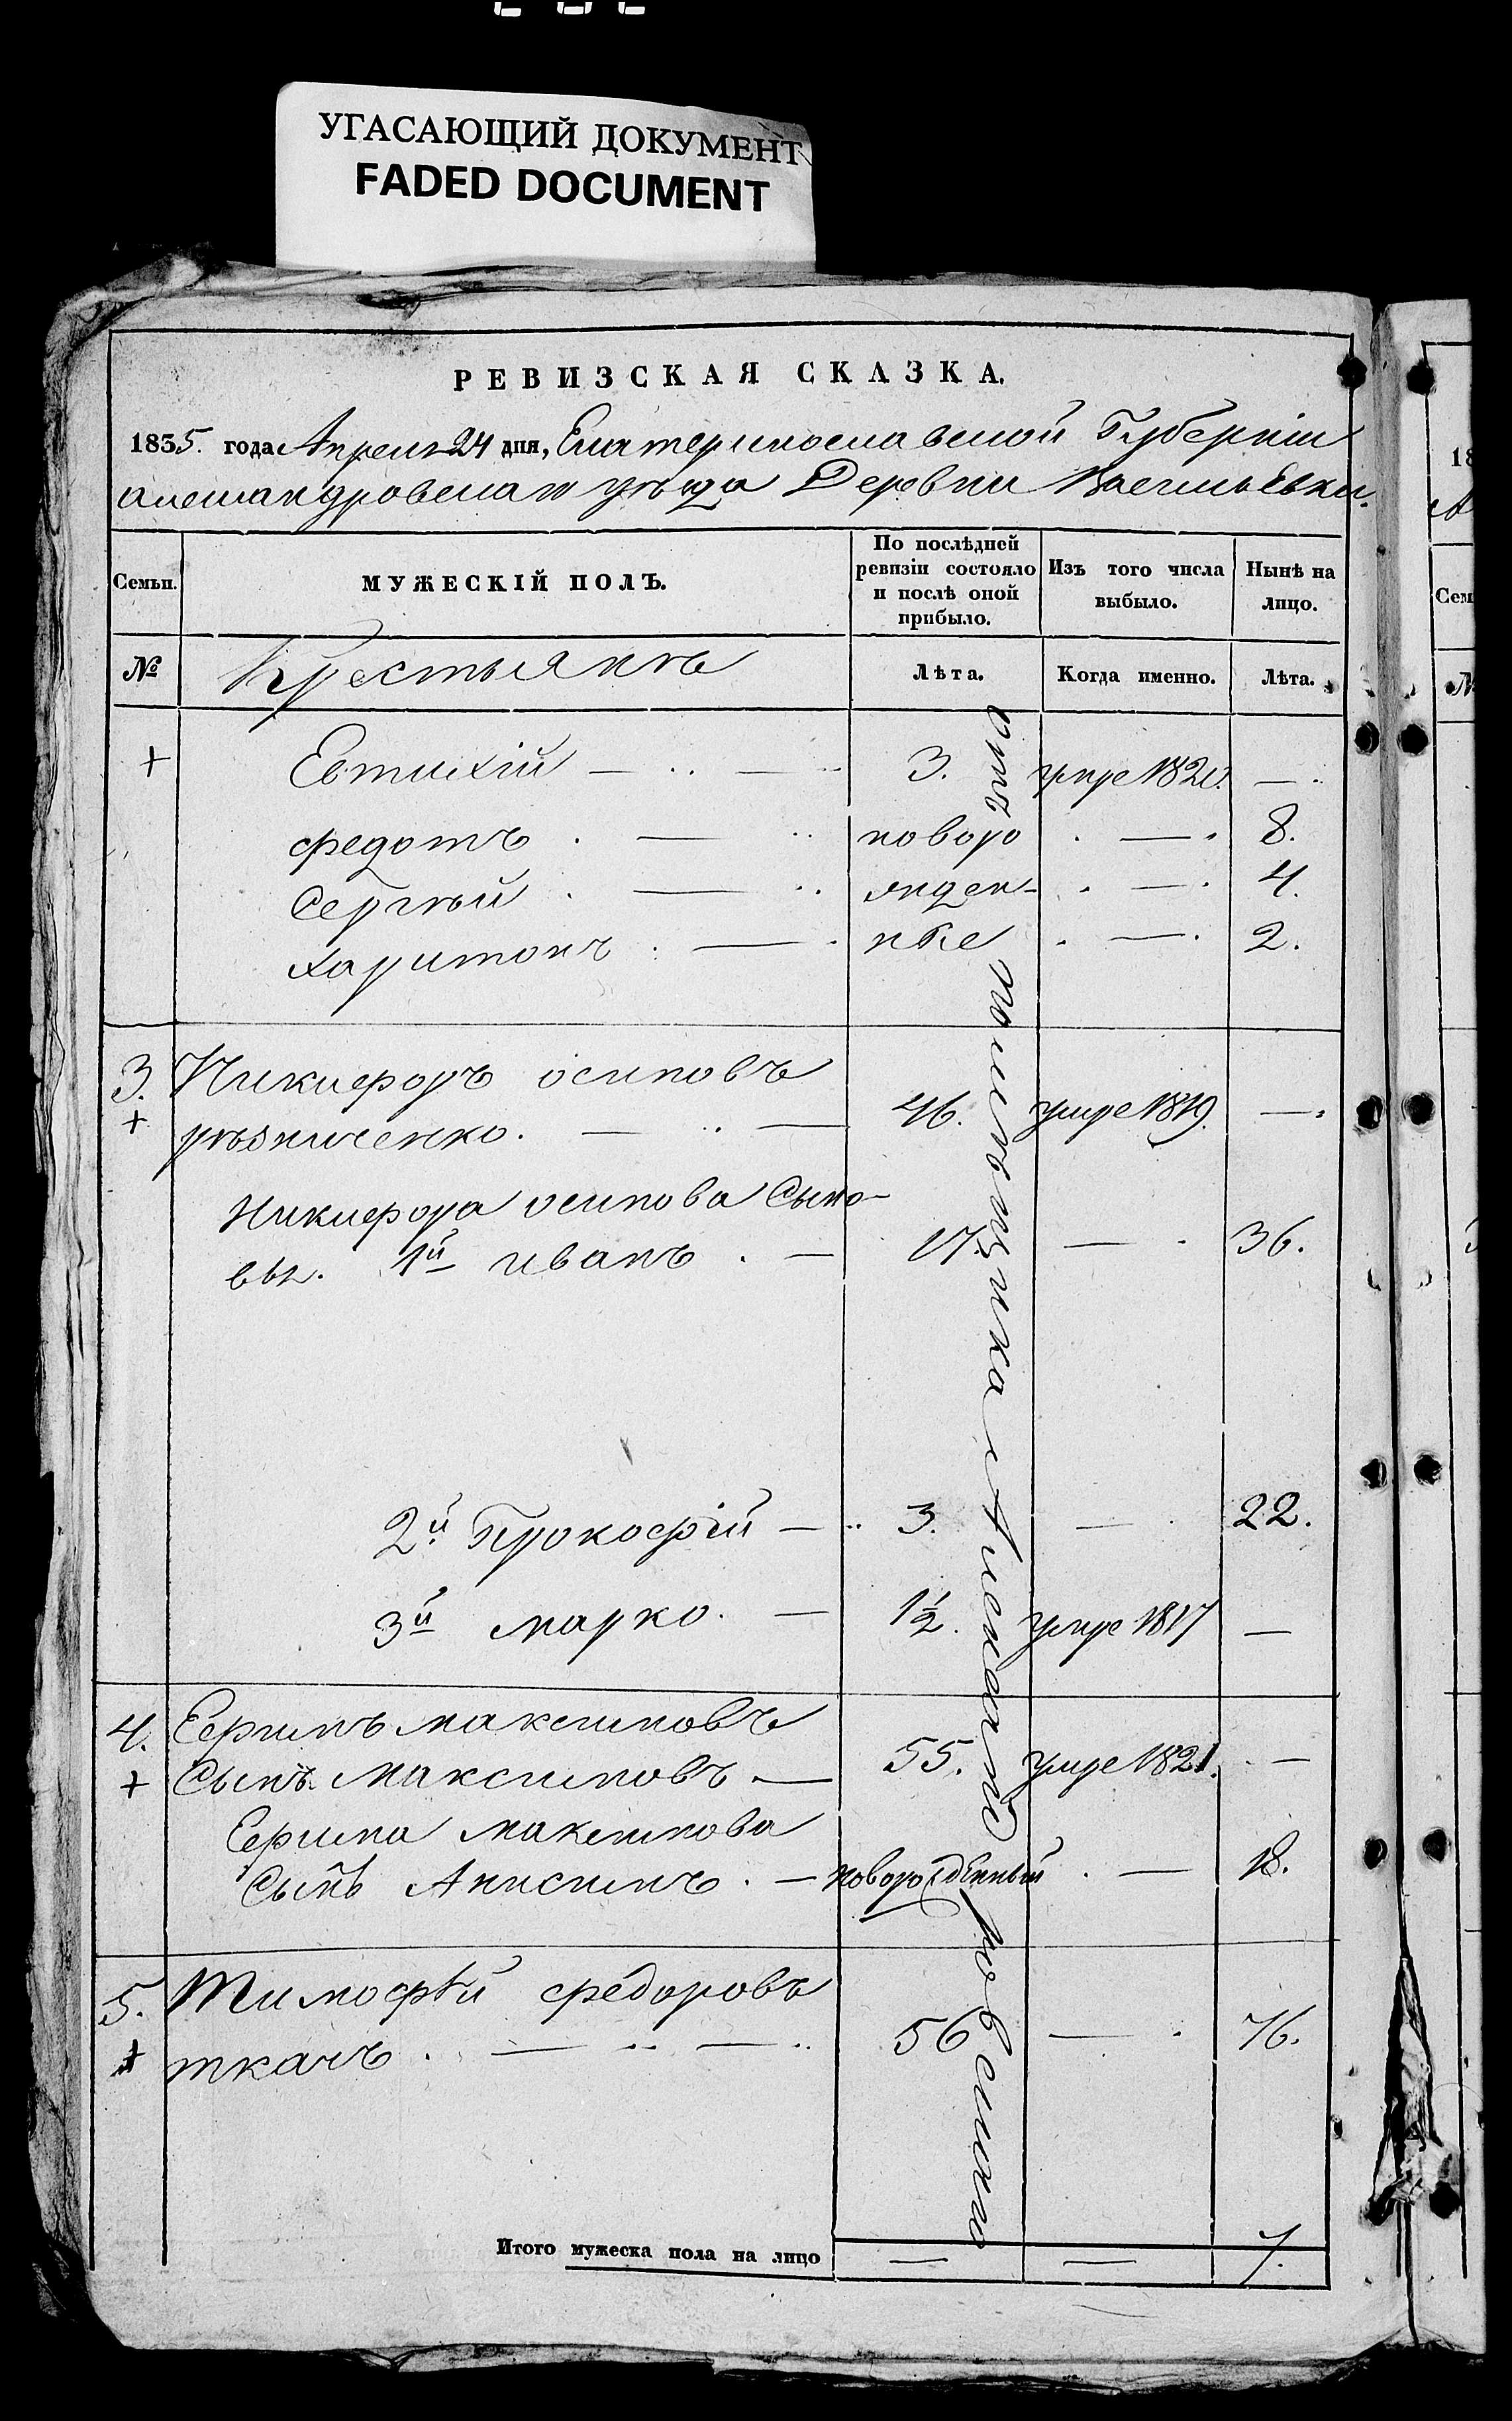 УГАСАЮЩИЙ ДОКУМЕНТ
FADED DOCUMENT
РЕВИЗСКАЯ СКАЗКА.
1835. года Апреля 24 дня, Екатеринославской Губерніи
александровскаго уѣзда Деревни Васильевки.
Семьи.
МУЖЕСКІЙ ПОЛЪ.
По послѣдней ревизіи состояло и послѣ оной прибыло.
Изъ того числа выбыло.
Нынѣ на лицо.
№ Крестьянъ Лѣта. Когда именно. Лѣта.
+ Евтихій — .. — 3. умре 1820. —
федотъ . — .. новоро . — . 8.
Сергѣй . — .. жден- . — . 4.
харитонъ : — . ные . — . 2.
3. Никифоръ осиповъ
+ рѣзниченко. — .. — 46. умре 1819. — .
Никифора осипова Сыно-
вья. 1й иванъ . — 17. — . 36.
2й Прокофій — .. 3. — . 22.
3й марко. — 1½. умре 1817 —
4. Ефимъ максимовъ
+ Сынъ Максимовъ — 55. умре 1821. . —
Ефима максимова
Сынъ Анисимъ . — новорожденный . — 18.
5. Тимофѣй федоровъ
+ ткачъ . — .. — .. 56 — . 76.
помещика Александровскаго
Итого мужеска пола на лицо — — 7.